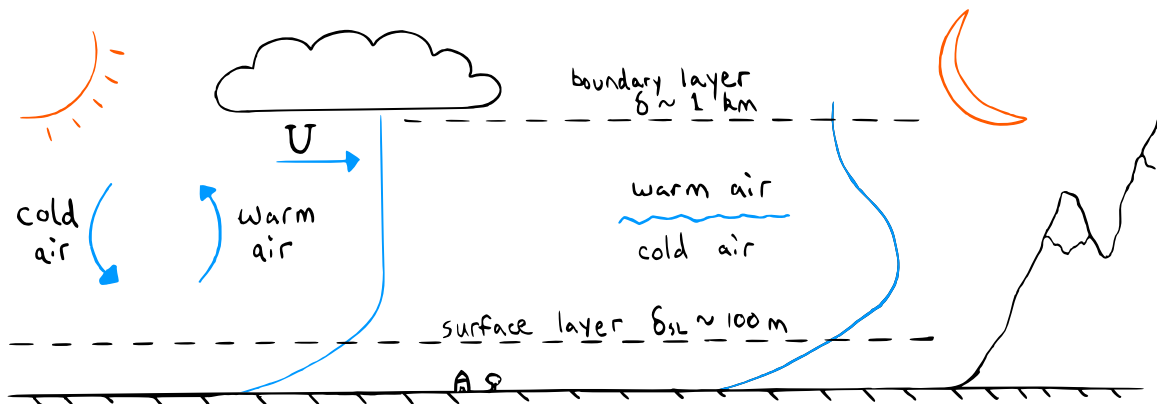 boundary layer
δ ~ 1 km
U
cold
air
warm
air
warm air
cold air
surface layer δSL ~ 100 m